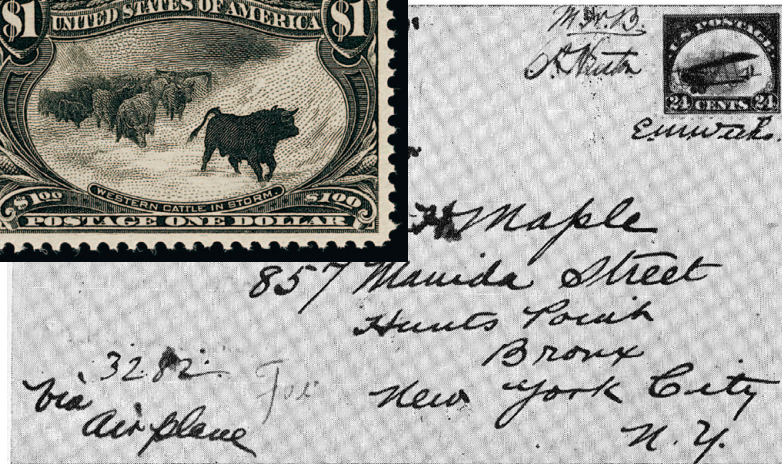 $1 UNITED STATES OF AMERICA $1
WESTERN CATTLE IN STORM.
$1.00 $1.00
POSTAGE ONE DOLLAR
U.S. POSTAGE
24 CENTS 24
Maple
857 Manida Street
Hunts Point
Bronx
New York City
N.Y.
3282
For
Via
Air plane